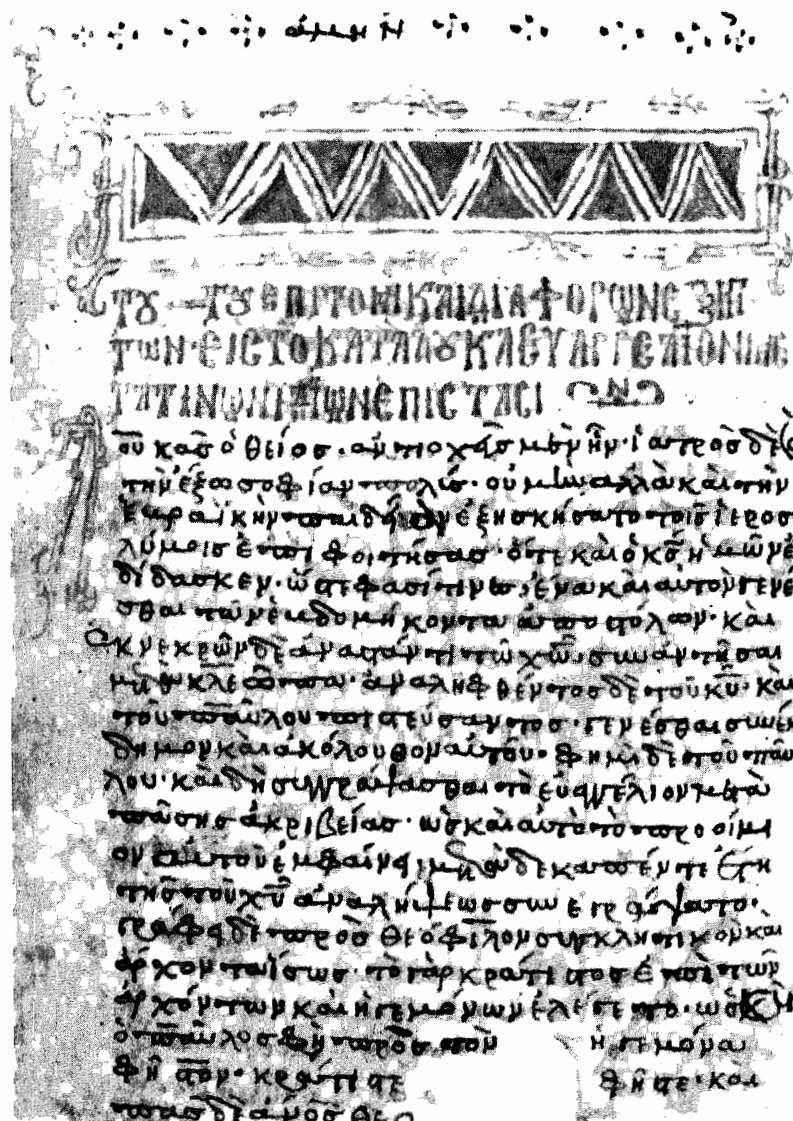 ἀμήν
ΤΟΥ ΑΥΤΟΥ ΕΠΙΤΟΜΗ ΚΑΙ ΔΙΑΦΟΡΩΝ ΕΞΗΓΗ
ΤΩΝ· ΕΙΣ ΤΟ ΚΑΤΑ ΛΟΥΚΑ ΕΥΑΓΓΕΛΙΟΝ
ΚΑΤΑ ΤΙΝΩΝ ΚΑΙΩΝ ΕΠΙΣΤΑΣΙΩΝ
Λουκᾶς ὁ θεῖος· ἀντιοχεὺς μὲν ἦν· ἰατρὸς δὲ
τὴν ἔξω σοφίαν πολύς· οὐ μὴν ἀλλὰ καὶ τὴν
ἑβραϊκὴν παιδείαν ἐξησκήσατο τοῖς ἱεροσο
λύμοις ἐπιφοιτήσας· ὅτε καὶ ὁ κς ἡμῶν ἐ
δίδασκεν· ὥστε φασί τινες, ἕνα καὶ αὐτὸν γενέ
σθαι τῶν ἑβδομήκοντα ἀποστόλων· καὶ
ἐκ νεκρῶν δὲ ἀναστάντι τῷ χῶ, συναντῆσαι
μετὰ κλεώπα· ἀναληφθέντος δὲ τοῦ κυ· καὶ
τοῦ παύλου πιστεύσαντος· γενέσθαι συνέκ
δημον καὶ ἀκόλουθον αὐτοῦ· φημὶ δὲ τοῦ παύ
λου· καὶ δὴ συγγράψασθαι τὸ εὐαγγέλιον μετὰ
πάσης ἀκριβείας· ὡς καὶ αὐτὸ τὸ προοίμι
ον αὐτοῦ ἐμφαίνει μετὰ δεκαπέντε ἔτη
τῆς τοῦ χυ ἀναλήψεως συνεγράψατο·
γράφει δὲ πρὸς θεόφιλον συγκλητικὸν καὶ
ἄρχοντα ἴσως· τὸ γὰρ κράτιστος ἐπὶ τῶν
ἀρχόντων καὶ ἡγεμόνων ἐλέγετο· ὡς καὶ
ὁ παῦλος φησὶ πρὸς τὸν ἡγεμόνα
φῆστον· κράτιστε φῆστε· καὶ
πᾶς δὲ ἄνος θε